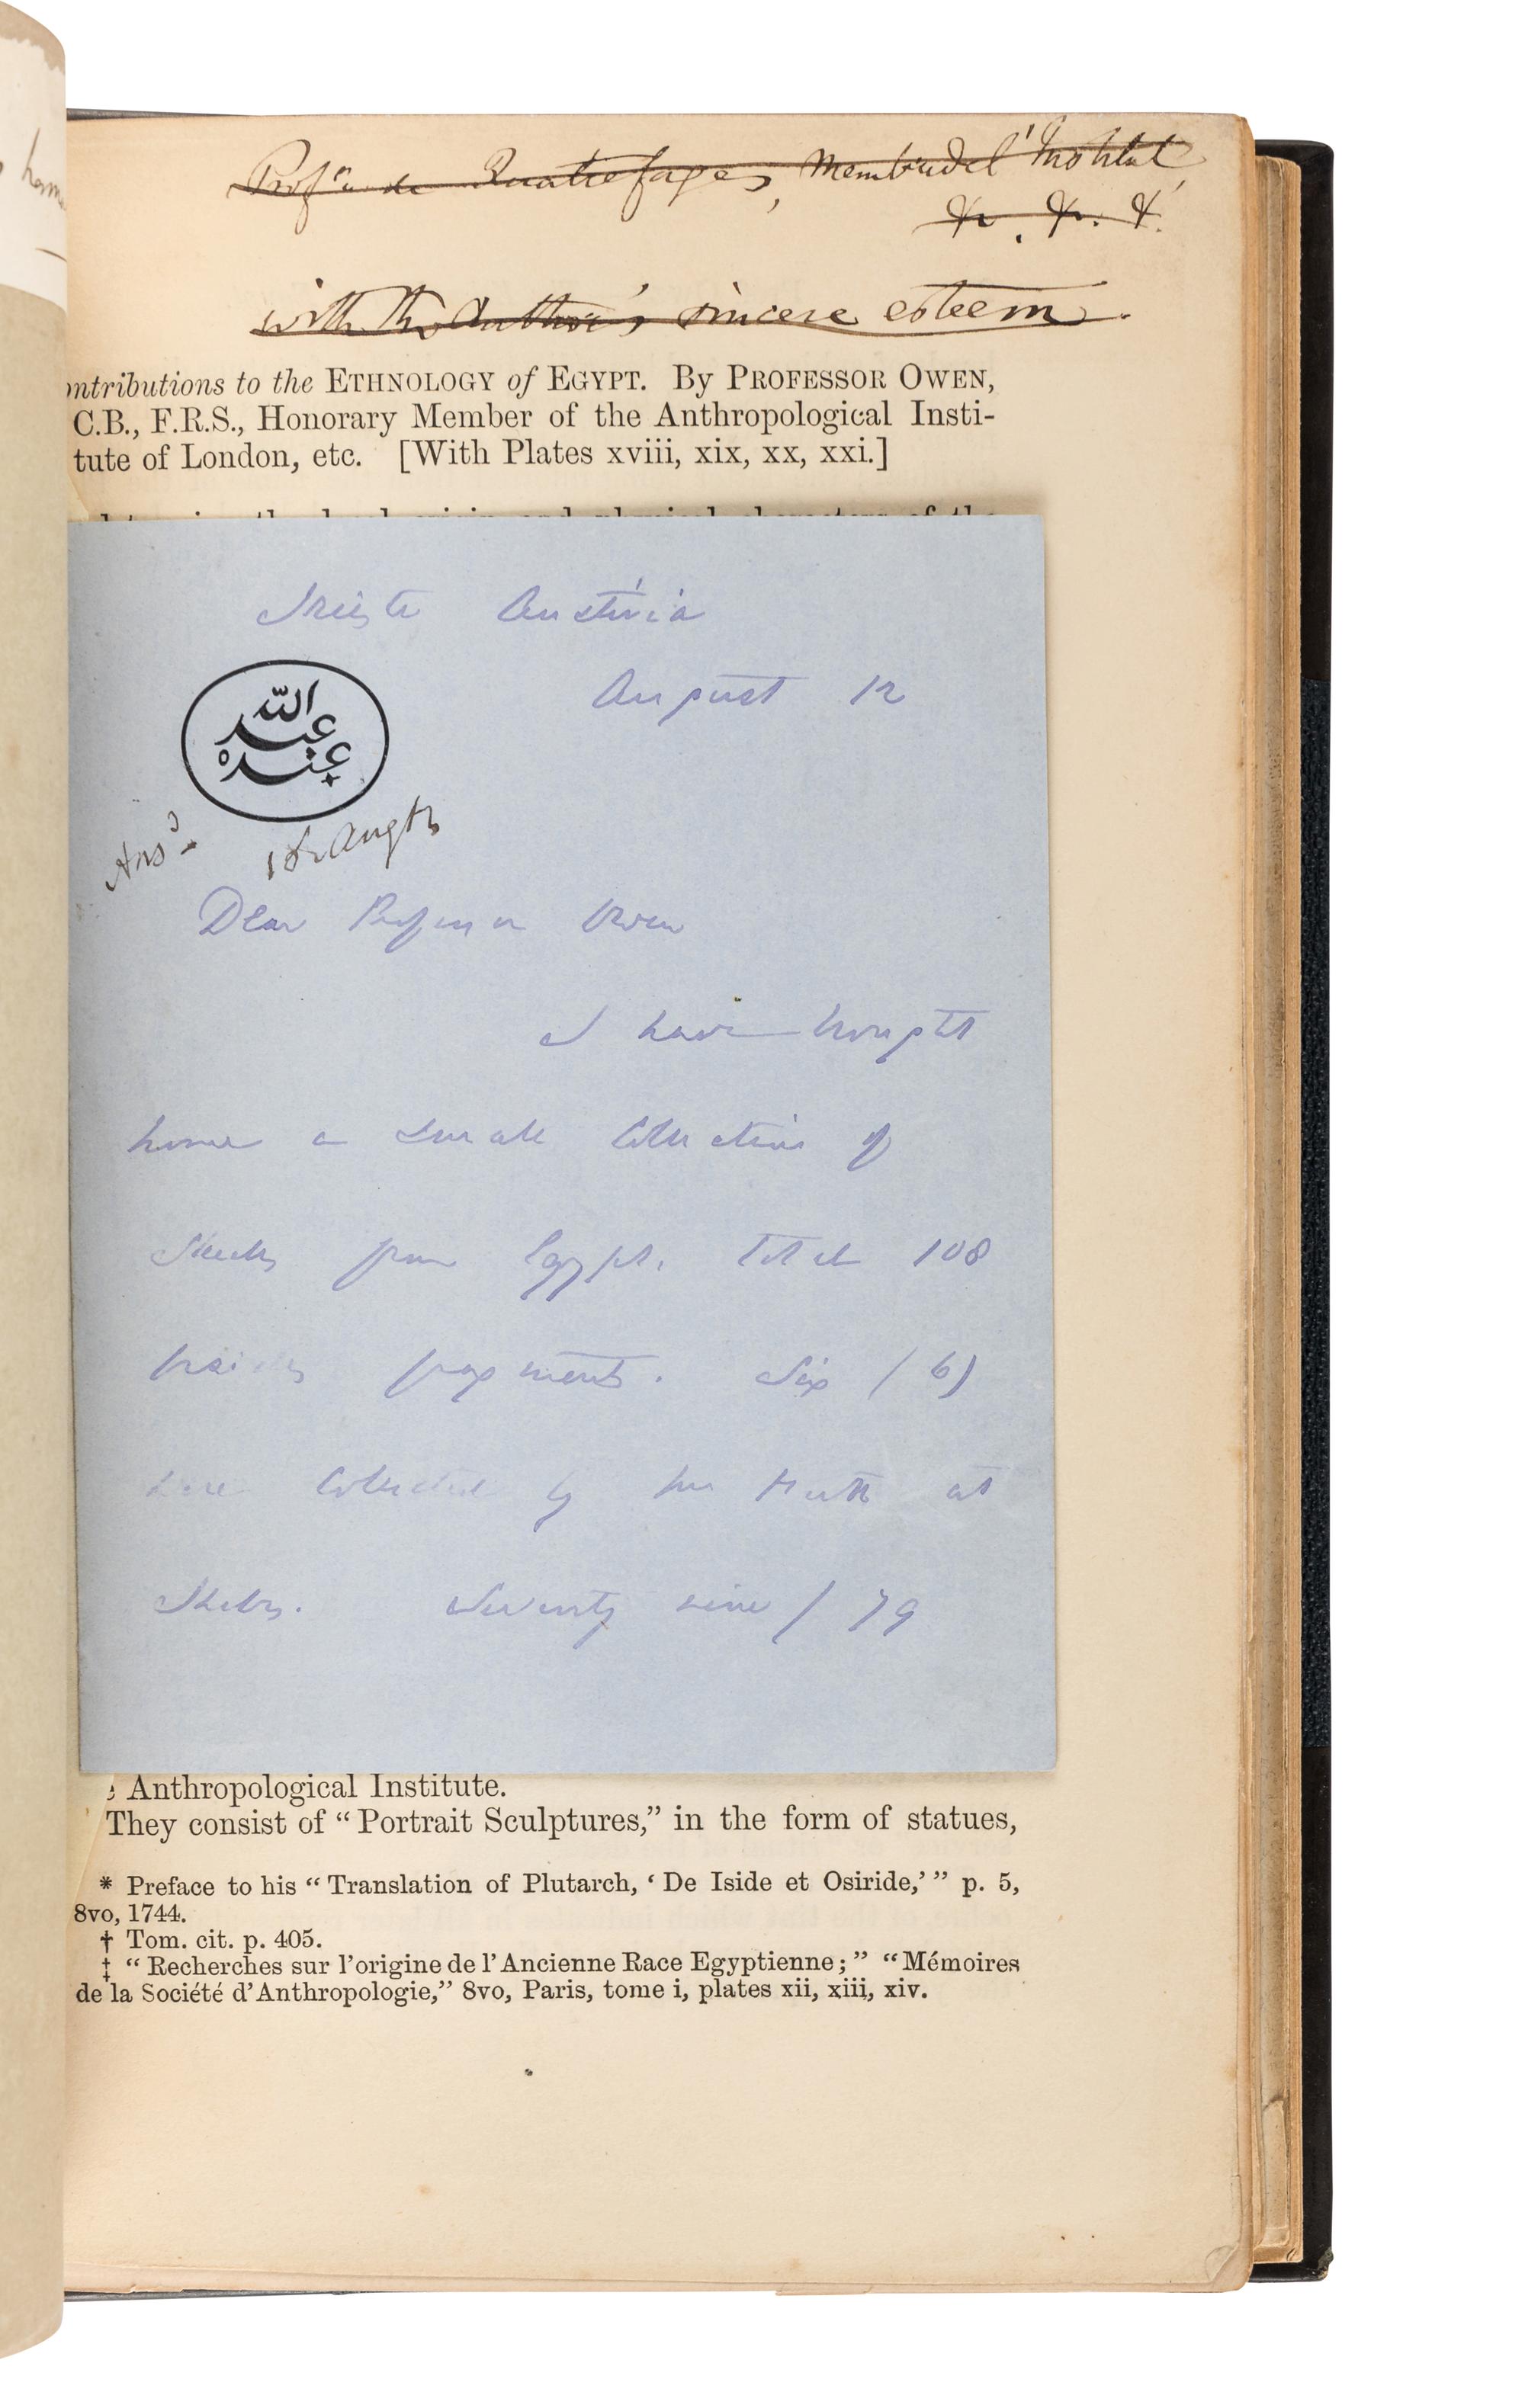 Profr. de Quatrefages, Membre de l'Institut,
&c. &c. &.
with the Author's sincere esteem.
ontributions to the ETHNOLOGY of EGYPT. By PROFESSOR OWEN,
C.B., F.R.S., Honorary Member of the Anthropological Insti-
tute of London, etc. [With Plates xviii, xix, xx, xxi.]
Trieste Austria
August 12
الله
عبد
عبده
Ansd. 18 Augt
Dear Professor Owen
I have brought
home a small collection of
Skulls from Egypt. Total 108
fragments. Six (6)
were collected by Mr at
Thebes. Seventy nine / 79
e Anthropological Institute.
They consist of “Portrait Sculptures,” in the form of statues,
* Preface to his “Translation of Plutarch, ‘De Iside et Osiride,’” p. 5,
8vo, 1744.
† Tom. cit. p. 405.
‡ “Recherches sur l’origine de l’Ancienne Race Egyptienne;” “Mémoires
de la Société d’Anthropologie,” 8vo, Paris, tome i, plates xii, xiii, xiv.